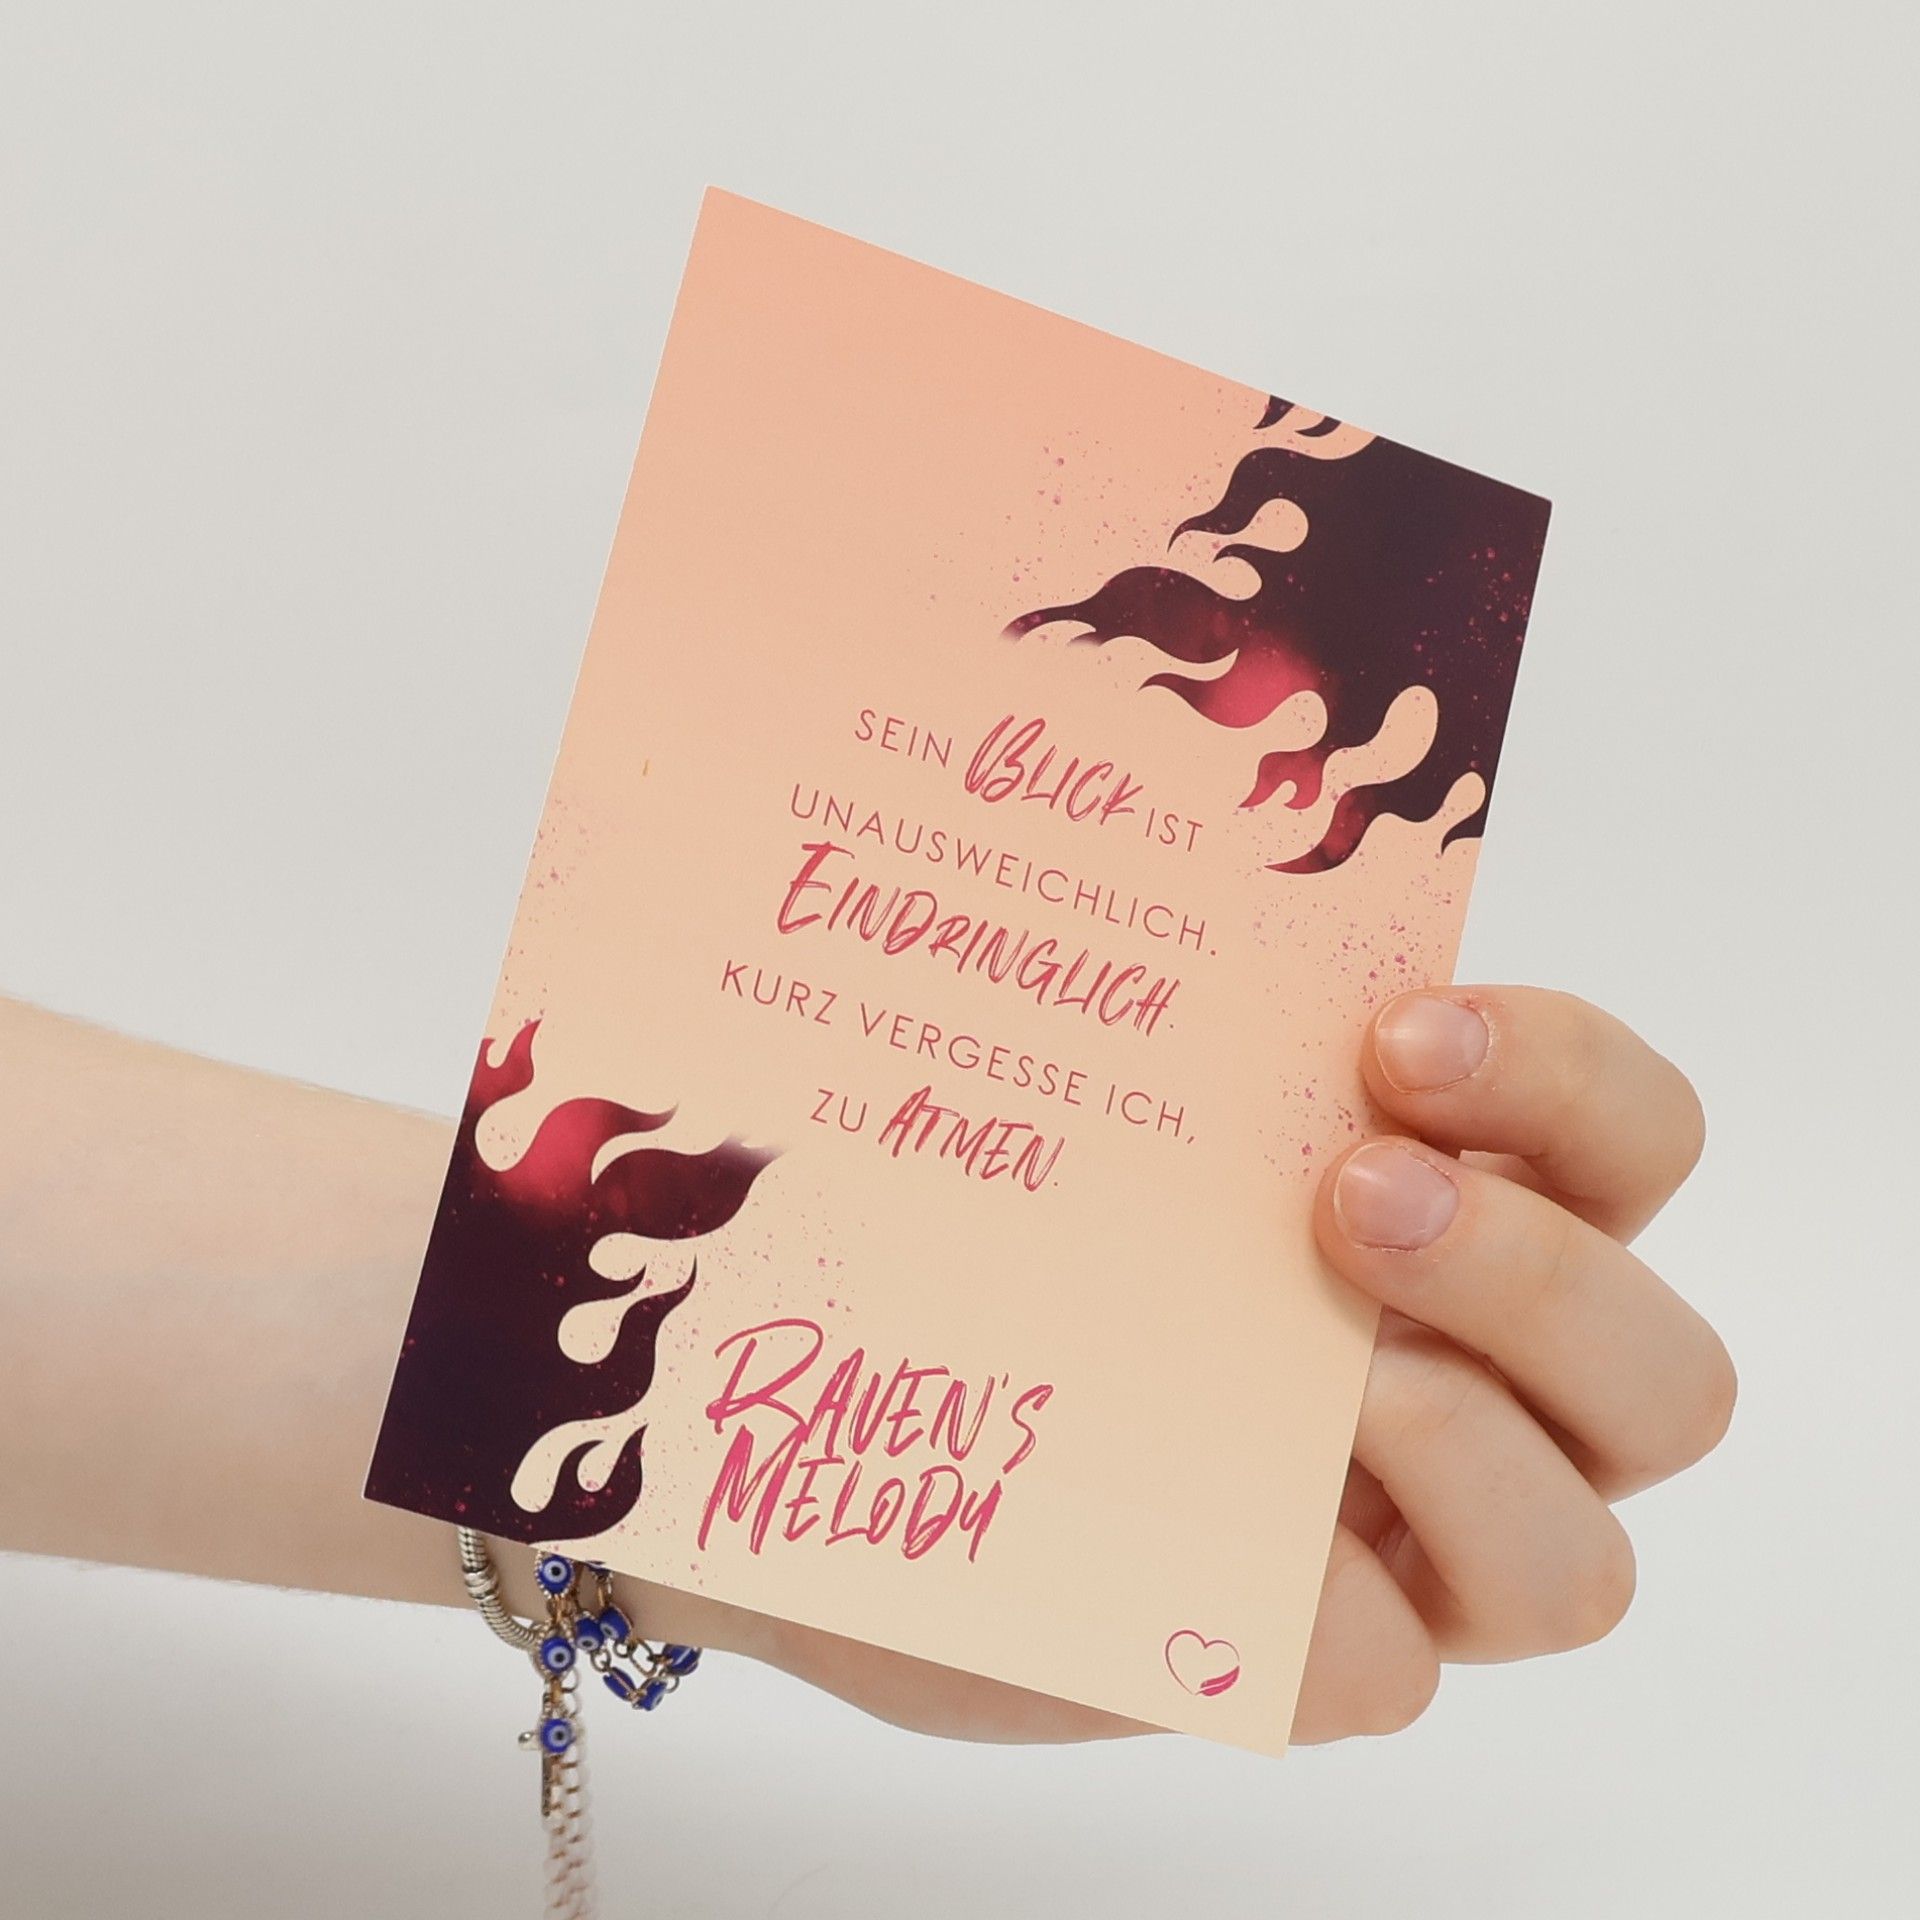 SEIN BLICK IST
UNAUSWEICHLICH.
EINDRINGLICH.
KURZ VERGESSE ICH,
ZU ATMEN.
RAVEN'S
MELODY